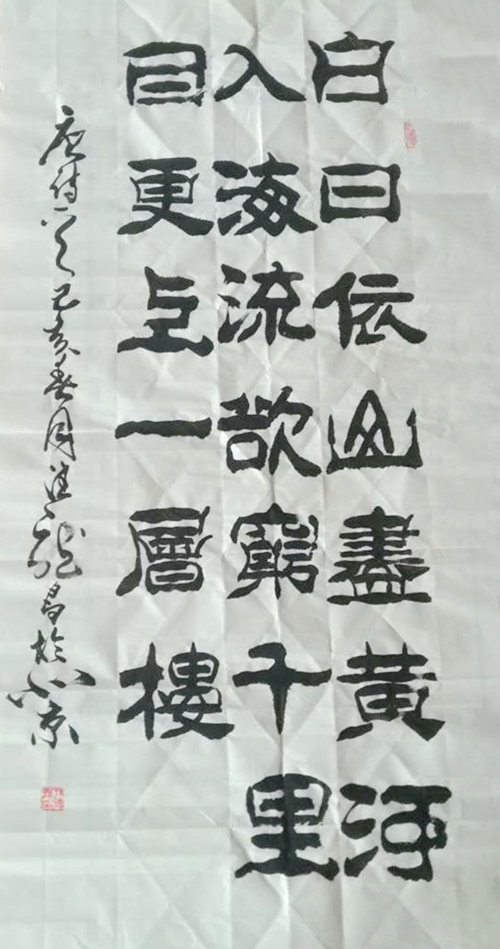 白日依山盡黄河
入海流欲窮千里
目更上一層樓
唐诗一首己亥春月書於北京